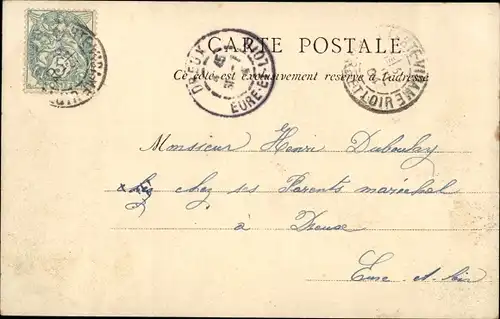 CARTE POSTALE
Ce côté est exclusivement réservé à l'adresse
DREUX
EURE-ET-LOIR
Monsieur Henri Duboulay
chez ses Parents maréchal
à Dreux
Eure-et-Loir